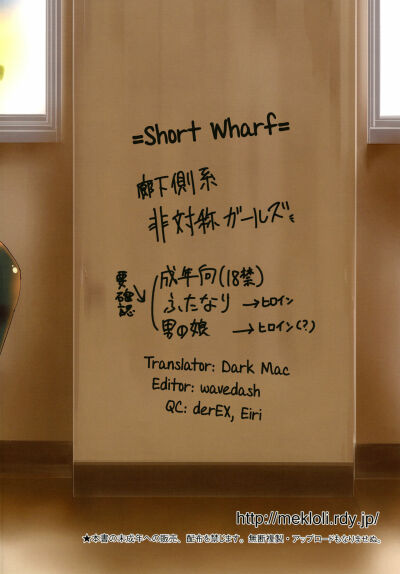 =Short Wharf=
廊下側系
非対称ガールズ
要確認
成年向(18禁)
ふたなり →ヒロイン
男の娘 →ヒロイン(?)
Translator: Dark Mac
Editor: wavedash
QC: derEX, Eiri
http://mekloli.rdy.jp/
★本書の未成年への販売、配布を禁じます。無断複製・アップロードもなりませぬ。